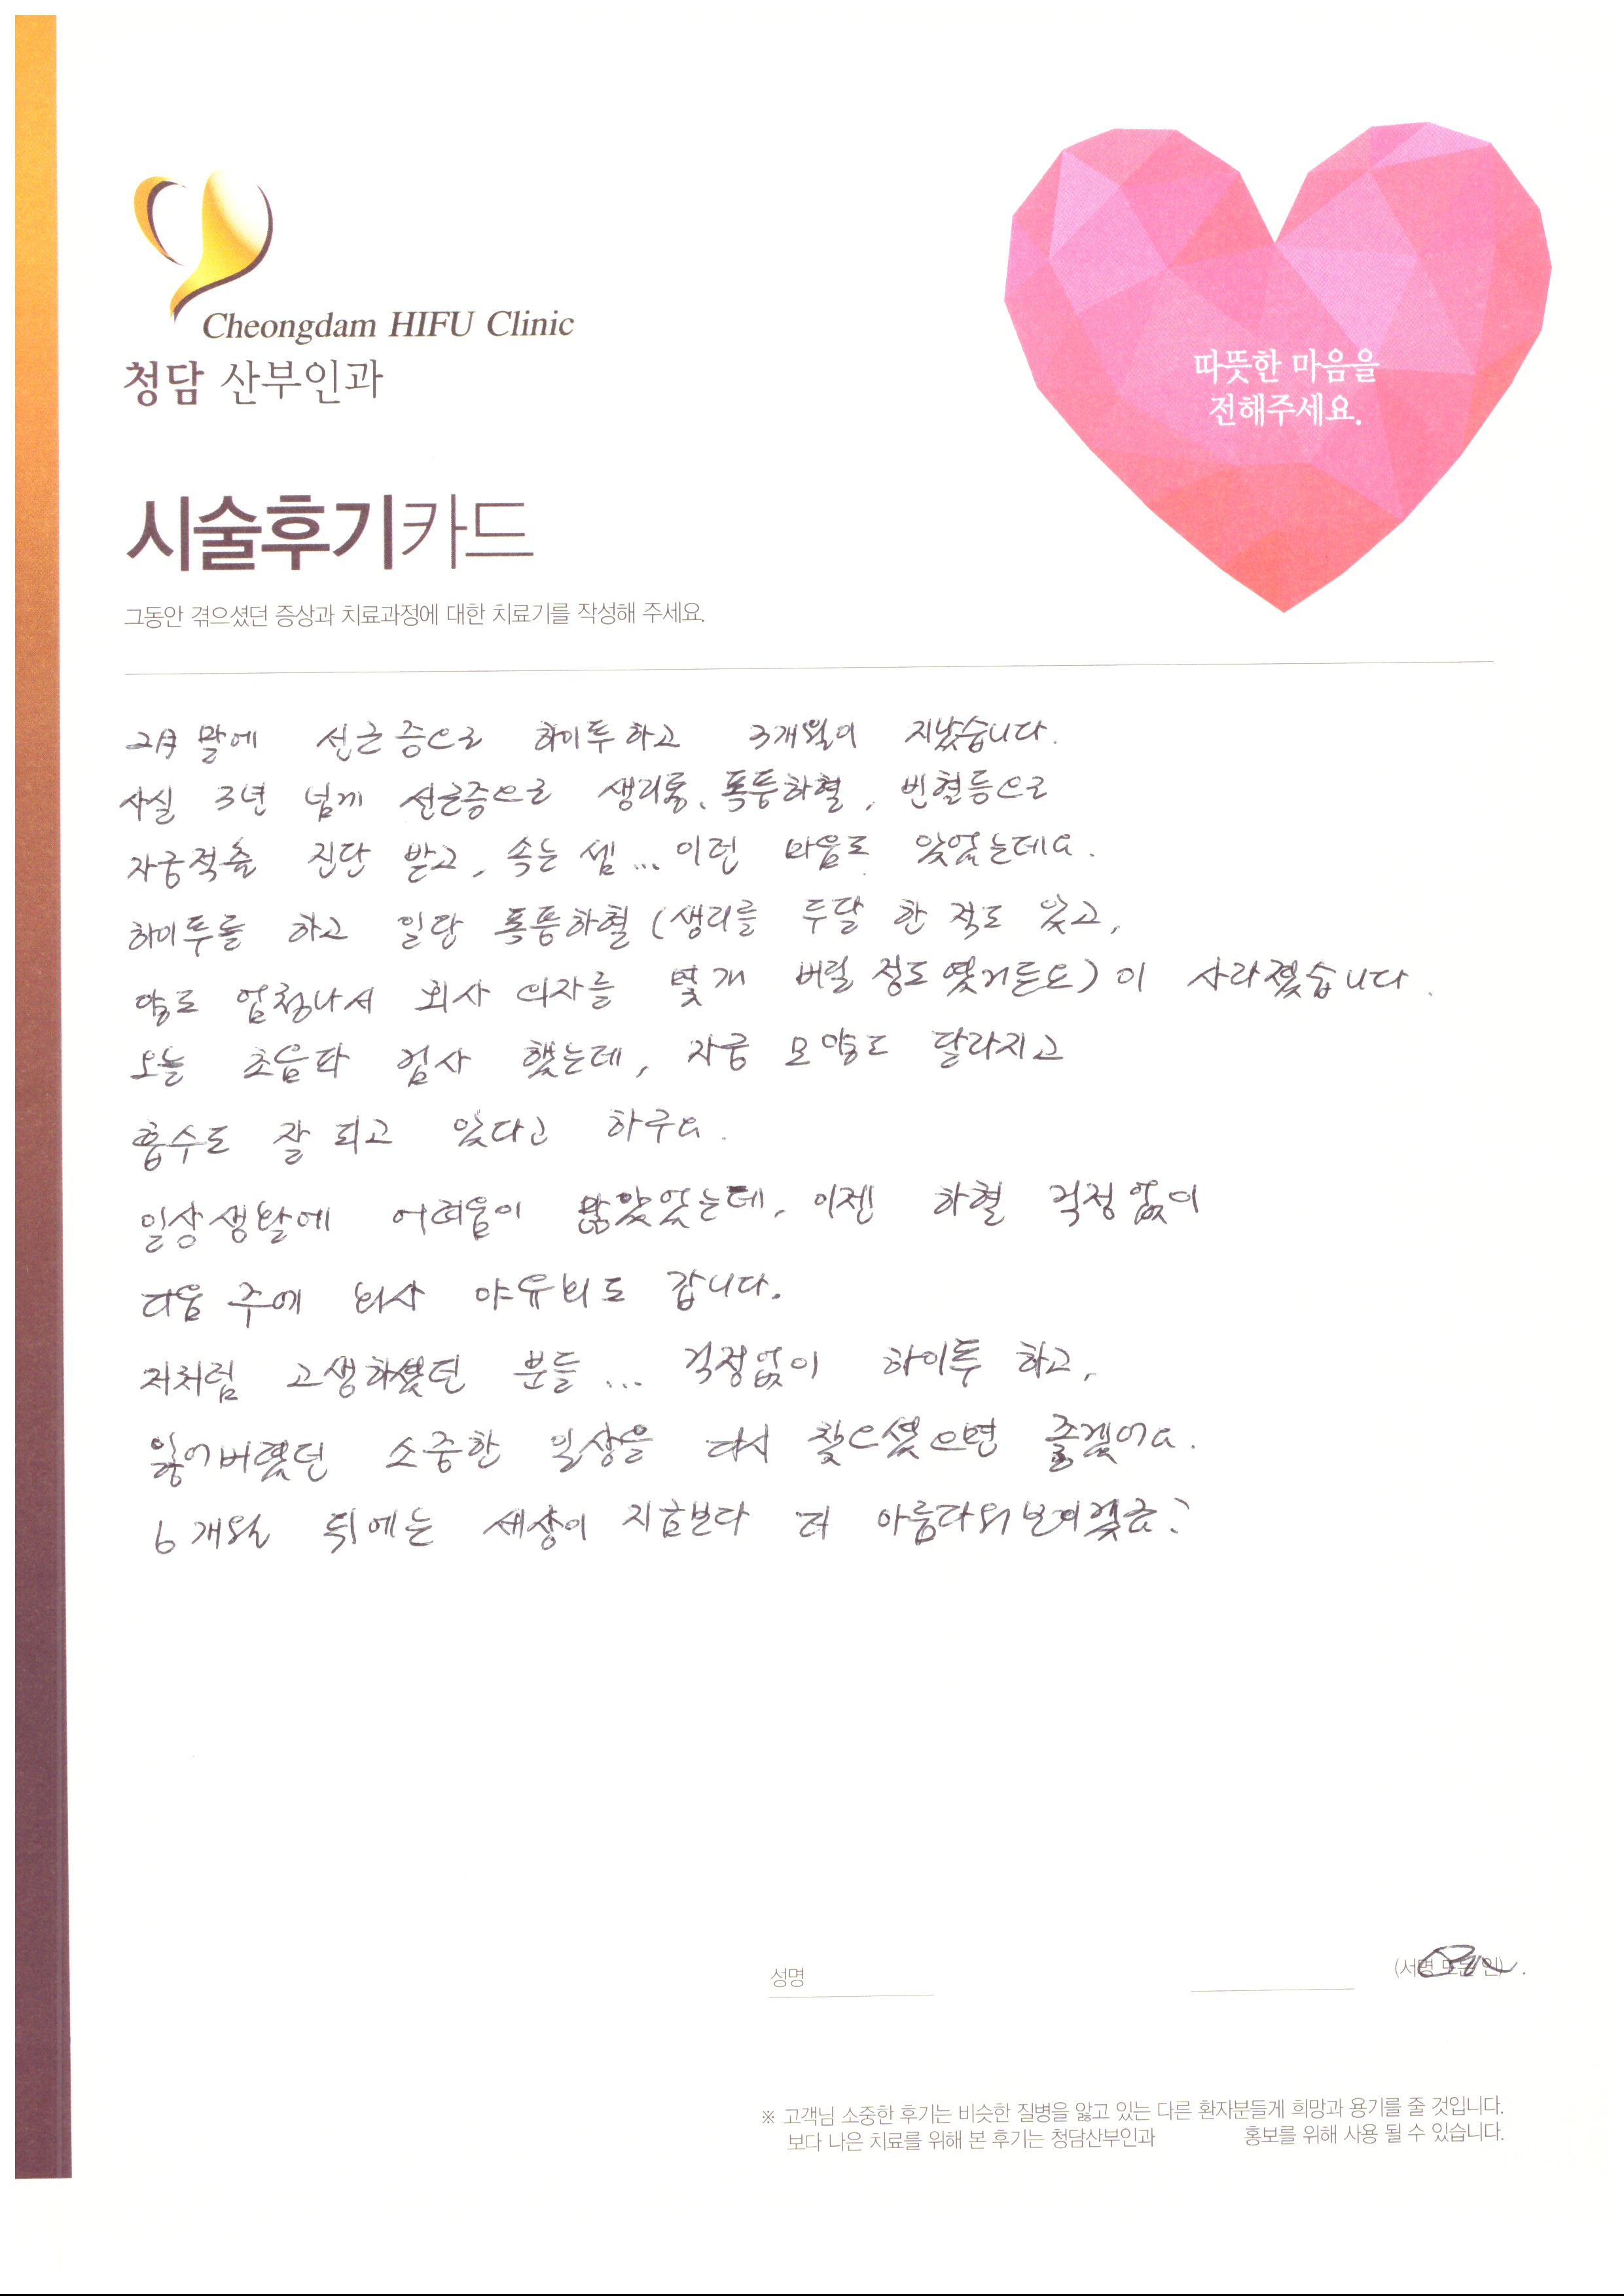 Cheongdam HIFU Clinic
청담 산부인과
따뜻한 마음을
전해주세요.
시술후기카드
그동안 겪으셨던 증상과 치료과정에 대한 치료기를 작성해 주세요.
2月 말에 선근증으로 하이푸하고 3개월이 지났습니다.
사실 3년 넘게 선근증으로 생리통, 폭풍하혈, 빈혈등으로
자궁적출 진단 받고, 속는 셈... 이런 마음도 있었는데요.
하이푸를 하고 일단 폭풍하혈 (생리를 두달 한 적도 있고,
양도 엄청나서 회사 의자를 몇개 버릴 정도였거든요) 이 사라졌습니다.
오늘 초음파 검사 했는데, 자궁 모양도 달라지고
흡수도 잘 되고 있다고 하구요.
일상생활에 어려움이 많았었는데, 이젠 하혈 걱정없이
다음 주에 회사 야유회도 갑니다.
저처럼 고생하셨던 분들... 걱정없이 하이푸 하고,
잃어버렸던 소중한 일상을 다시 찾으셨으면 좋겠어요.
6개월 뒤에는 세상이 지금보다 더 아름다워보이겠죠?
성명
(서명 또는 인)
※ 고객님 소중한 후기는 비슷한 질병을 앓고 있는 다른 환자분들게 희망과 용기를 줄 것입니다.
보다 나은 치료를 위해 본 후기는 청담산부인과 홍보를 위해 사용 될 수 있습니다.